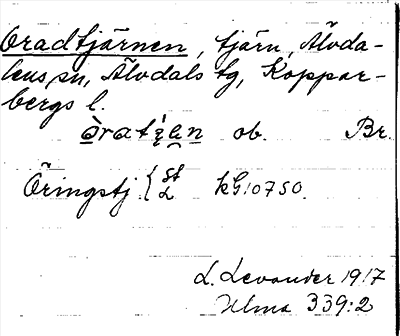 Oradtjärnen, tjärn, Älvda-
lens sn, Älvdals tg, Koppar-
bergs l.
ob. Br.
Öringstj. { St
L kG10750.
L. Levander 1917
Ulma 339:2